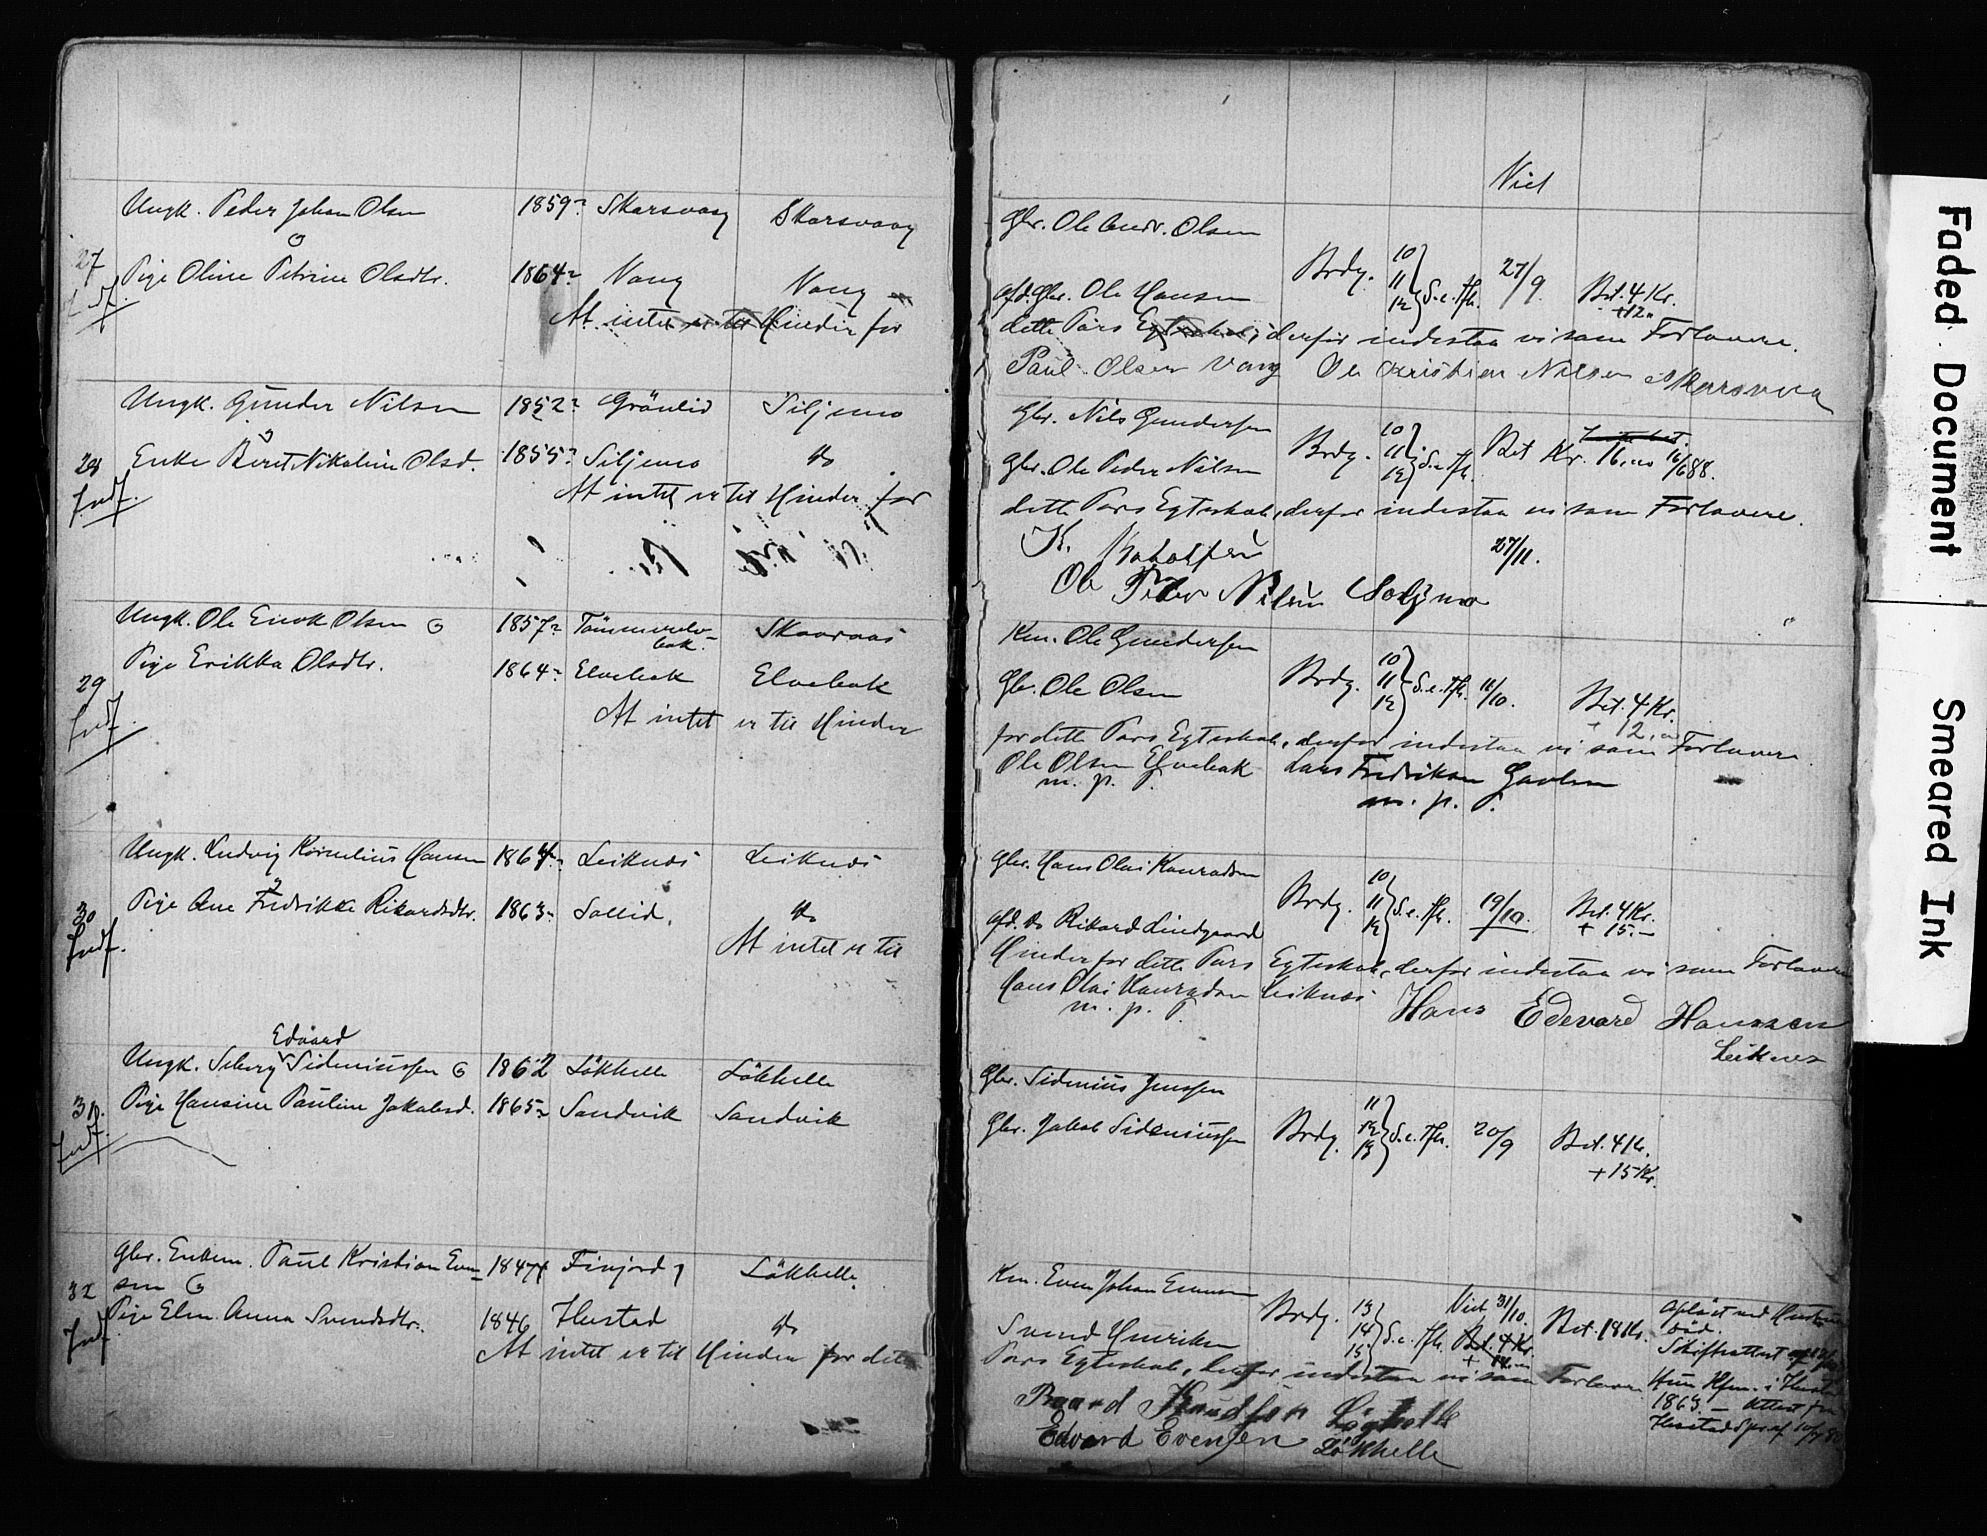 Viet
Ungk. Peder Johan Olsen 1859 Skarsvaag Skarsvaag Gbr. Ole Andr. Olsen
27 Pige Oline Petrine Olsdtr. 1864 Vang Vang afd. Gbr. Ole Hansen Brdg. 10 11 12 } S. e. Tfh. 27/9. Bet. 4 Kr. +12
Indf.
At intet er til Hinder for dette Pars Egteskab, derfor indestaa vi som Forlovere.
Paul Olsen Vang Ole Kristian Nilsen Skarsvaa
Ungk. Gunder Nilsen 1852 Grönlid Siljemo Gbr. Nils Gundersen
28 Enke Beret Nikoline Olsd. 1855 Siljemo do Gbr. Ole Peder Nilsen Brdg. 10 11 12 } S. e. Tfh. Bet Kr. 16,00 16/6 88.
Indf.
At intet er til Hinder for dette Pars Egteskab, derfor indestaa vi som Forlovere.
K. 27/11.
Ole Peder Nilsen
Ungk. Ole Erik Olsen 1857 Skaaraas Km. Ole Gundersen
29 Pige Erikka Olsdtr. 1864 Elvebak Elvebak Gbr. Ole Olsen Brdg. 10 11 12 } S. e. Tfh. 11/10. Bet. 4 Kr. + 12,
Indf.
At intet er til Hinder for dette Pars Egteskab, derfor indestaa vi som Forlovere.
Ole Olsen Elvebak Lars Fredriksen
m. p. P. m. p. P.
Ungk. Ludvig Kornelius Hansen 1864 Leiknes Leiknes Gbr. Hans Olai Konradsen
30 Pige Ane Fredrikke Rikardsdtr. 1863 Sollid. do afd. do Rikard Lindgaard Brdg. 10 11 12 } S. e. Tfh. 19/10. Bet. 4 Kr. + 15.-
Indf.
At intet er til Hinder for dette Pars Egteskab, derfor indestaa vi som Forlovere
Hans Olai Konradsen Leiknes Hans Edevard Hanssen
m. p. P. Leiknes
Edvard
Ungk. Siberg Sideniussen 1862 Lökhelle Lökhelle Gbr. Sidenius Jenssen
31. Pige Hansine Pauline Jakobsd. 1865 Sandvik Sandvik Gbr. Jakob Sideniussen Brdg. 11 12 13 } S. e. Tfh. 20/9 Bet. 4 Kr. +15 Kr.
Indf.
Gbr. Enkem. Paul Kristian Evensen 1847 Finjord Lökhelle Km. Even Johan Evensen
32 Pige Elen Anna Svendsdtr. 1846 Hustad do Svend Henriksen Brdg. 13 14 15 } S. e. Tfh. Viet 31/10. Bet. 4 Kr. Bet. 18 Kr.
Indf.
At intet er til Hinder for dette Pars Egteskab, derfor indestaa vi som Forlovere
Baard Knudsen Lökhelle
Edvard Evensen Lökhelle
Hun Kfm. i Hustad 1863. - Attest fra
Faded Document
Smeared Ink